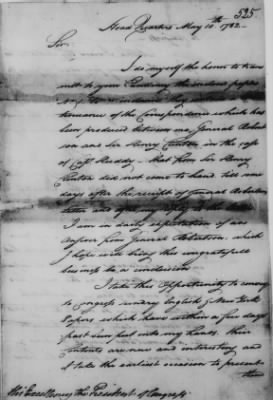 525
Head Quarters May 10th 1782
Sir,
I do myself the honor to trans
mit to your Excellency the inclosed papers
tinuance of the Correspondence which has
been produced between me, General Robert
son and Sir Henry Clinton in the case
of Capt Huddy — that from Sir Henry
Clinton did not come to hand till some
days after the receipt of General Robertsons
letter and
I am in daily expectation of an
answer from General Robertson, which
I hope will bring this ungratefull
business to a conclusion
I take this Opportunity to convey
to Congress sundry English & New York
Papers which have within a few days
past been put into my hands. their
contents are new and interesting and
I take the earliest occasion to present
them
His Excellency the President of Congress